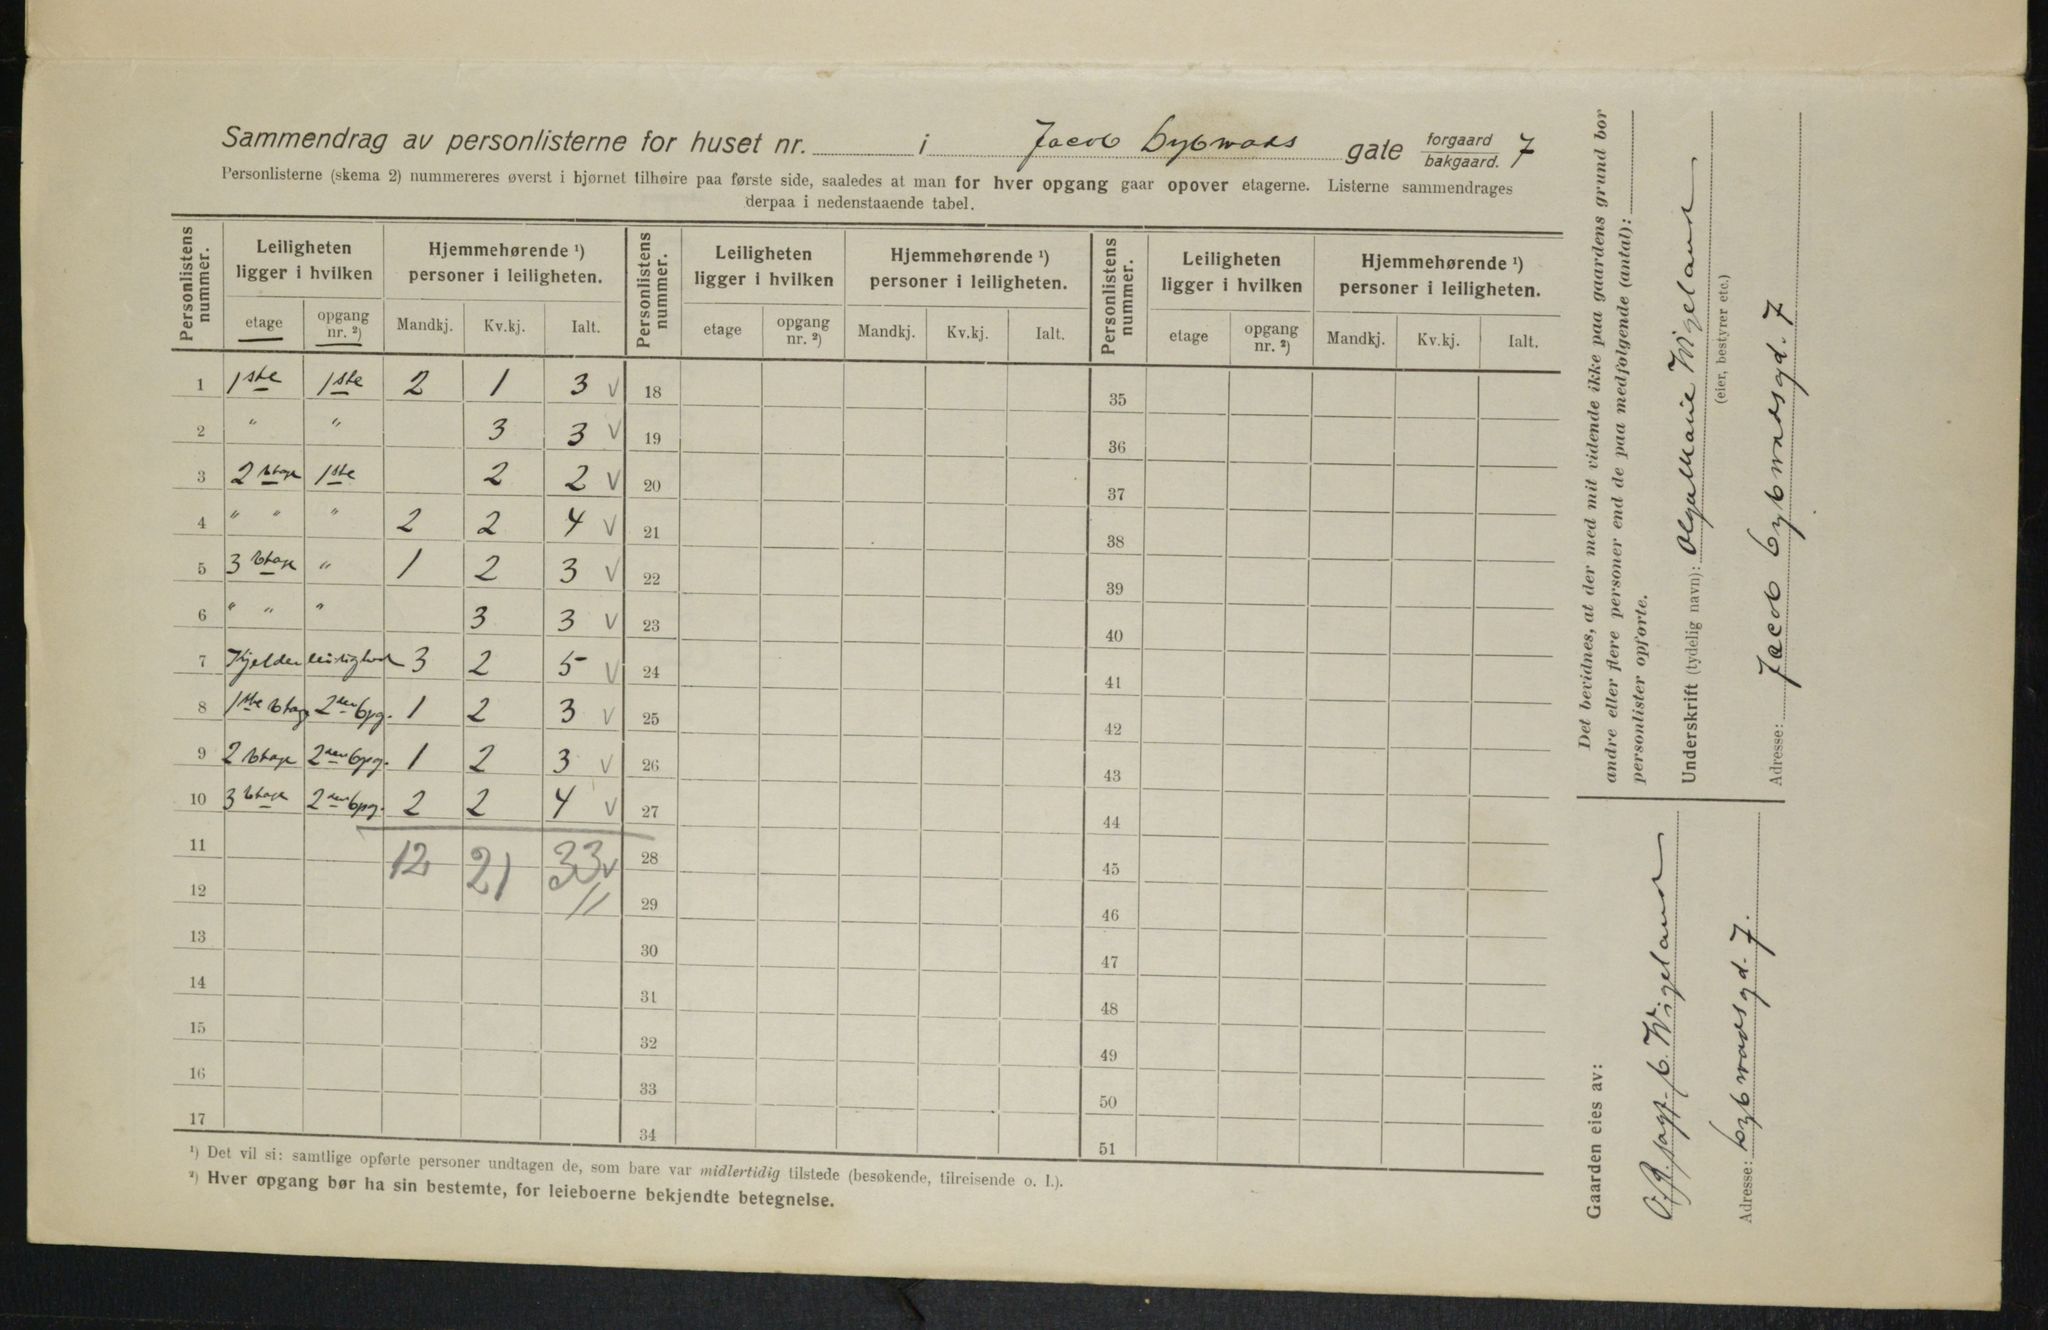 Sammendrag av personlisterne for huset nr. i Jacob Dybwads gate forgaard bakgaard. 7
Personlisterne (skema 2) nummereres øverst i hjørnet tilhøire paa første side, saaledes at man for hver opgang gaar opover etagerne. Listerne sammendrages
derpaa i nedenstaaende tabel.
Personlistens nummer. Leiligheten ligger i hvilken Hjemmehørende ¹) personer i leiligheten. Personlistens nummer. Leiligheten ligger i hvilken Hjemmehørende ¹) personer i leiligheten. Personlistens nummer. Leiligheten ligger i hvilken Hjemmehørende ¹) personer i leiligheten.
etage opgang nr. ²) Mandkj. Kv.kj. Ialt. etage opgang nr. ²) Mandkj. Kv.kj. Ialt. etage opgang nr. ²) Mandkj. Kv.kj. Ialt.
1 1ste 1ste 2 1 3 v 18 35
2 " " 3 3 v 19 36
3 2 etage 1ste 2 2 v 20 37
4 " " " 2 2 4 v 21 38
5 3 etage " 1 2 3 v 22 39
6 " " " 3 3 v 23 40
7 Kjelderleilighed 3 2 5 v 24 41
8 1ste etage 2den opg. 1 2 3 v 25 42
9 2 etage 2den opg. 1 2 3 v 26 43
10 3 etage 2den opg. 2 2 4 v 27 44
11 12 21 33 v 28 45
12 29 46
13 30 47
14 31 48
15 32 49
16 33 50
17 34 51
¹) Det vil si: samtlige opførte personer undtagen de, som bare var midlertidig tilstede (besøkende, tilreisende o. l.).
²) Hver opgang bør ha sin bestemte, for leieboerne bekjendte betegnelse.
Det bevidnes, at der med mit vidende ikke paa gaardens grund bor
andre eller flere personer end de paa medfølgende (antal):
personlister opførte.
Underskrift (tydelig navn): Olga Marie Wigeland
(eier, bestyrer etc.)
Adresse: Jacob Dybwadsgd. 7
Gaarden eies av:
Wigeland
Adresse: Dybwadsgd. 7.